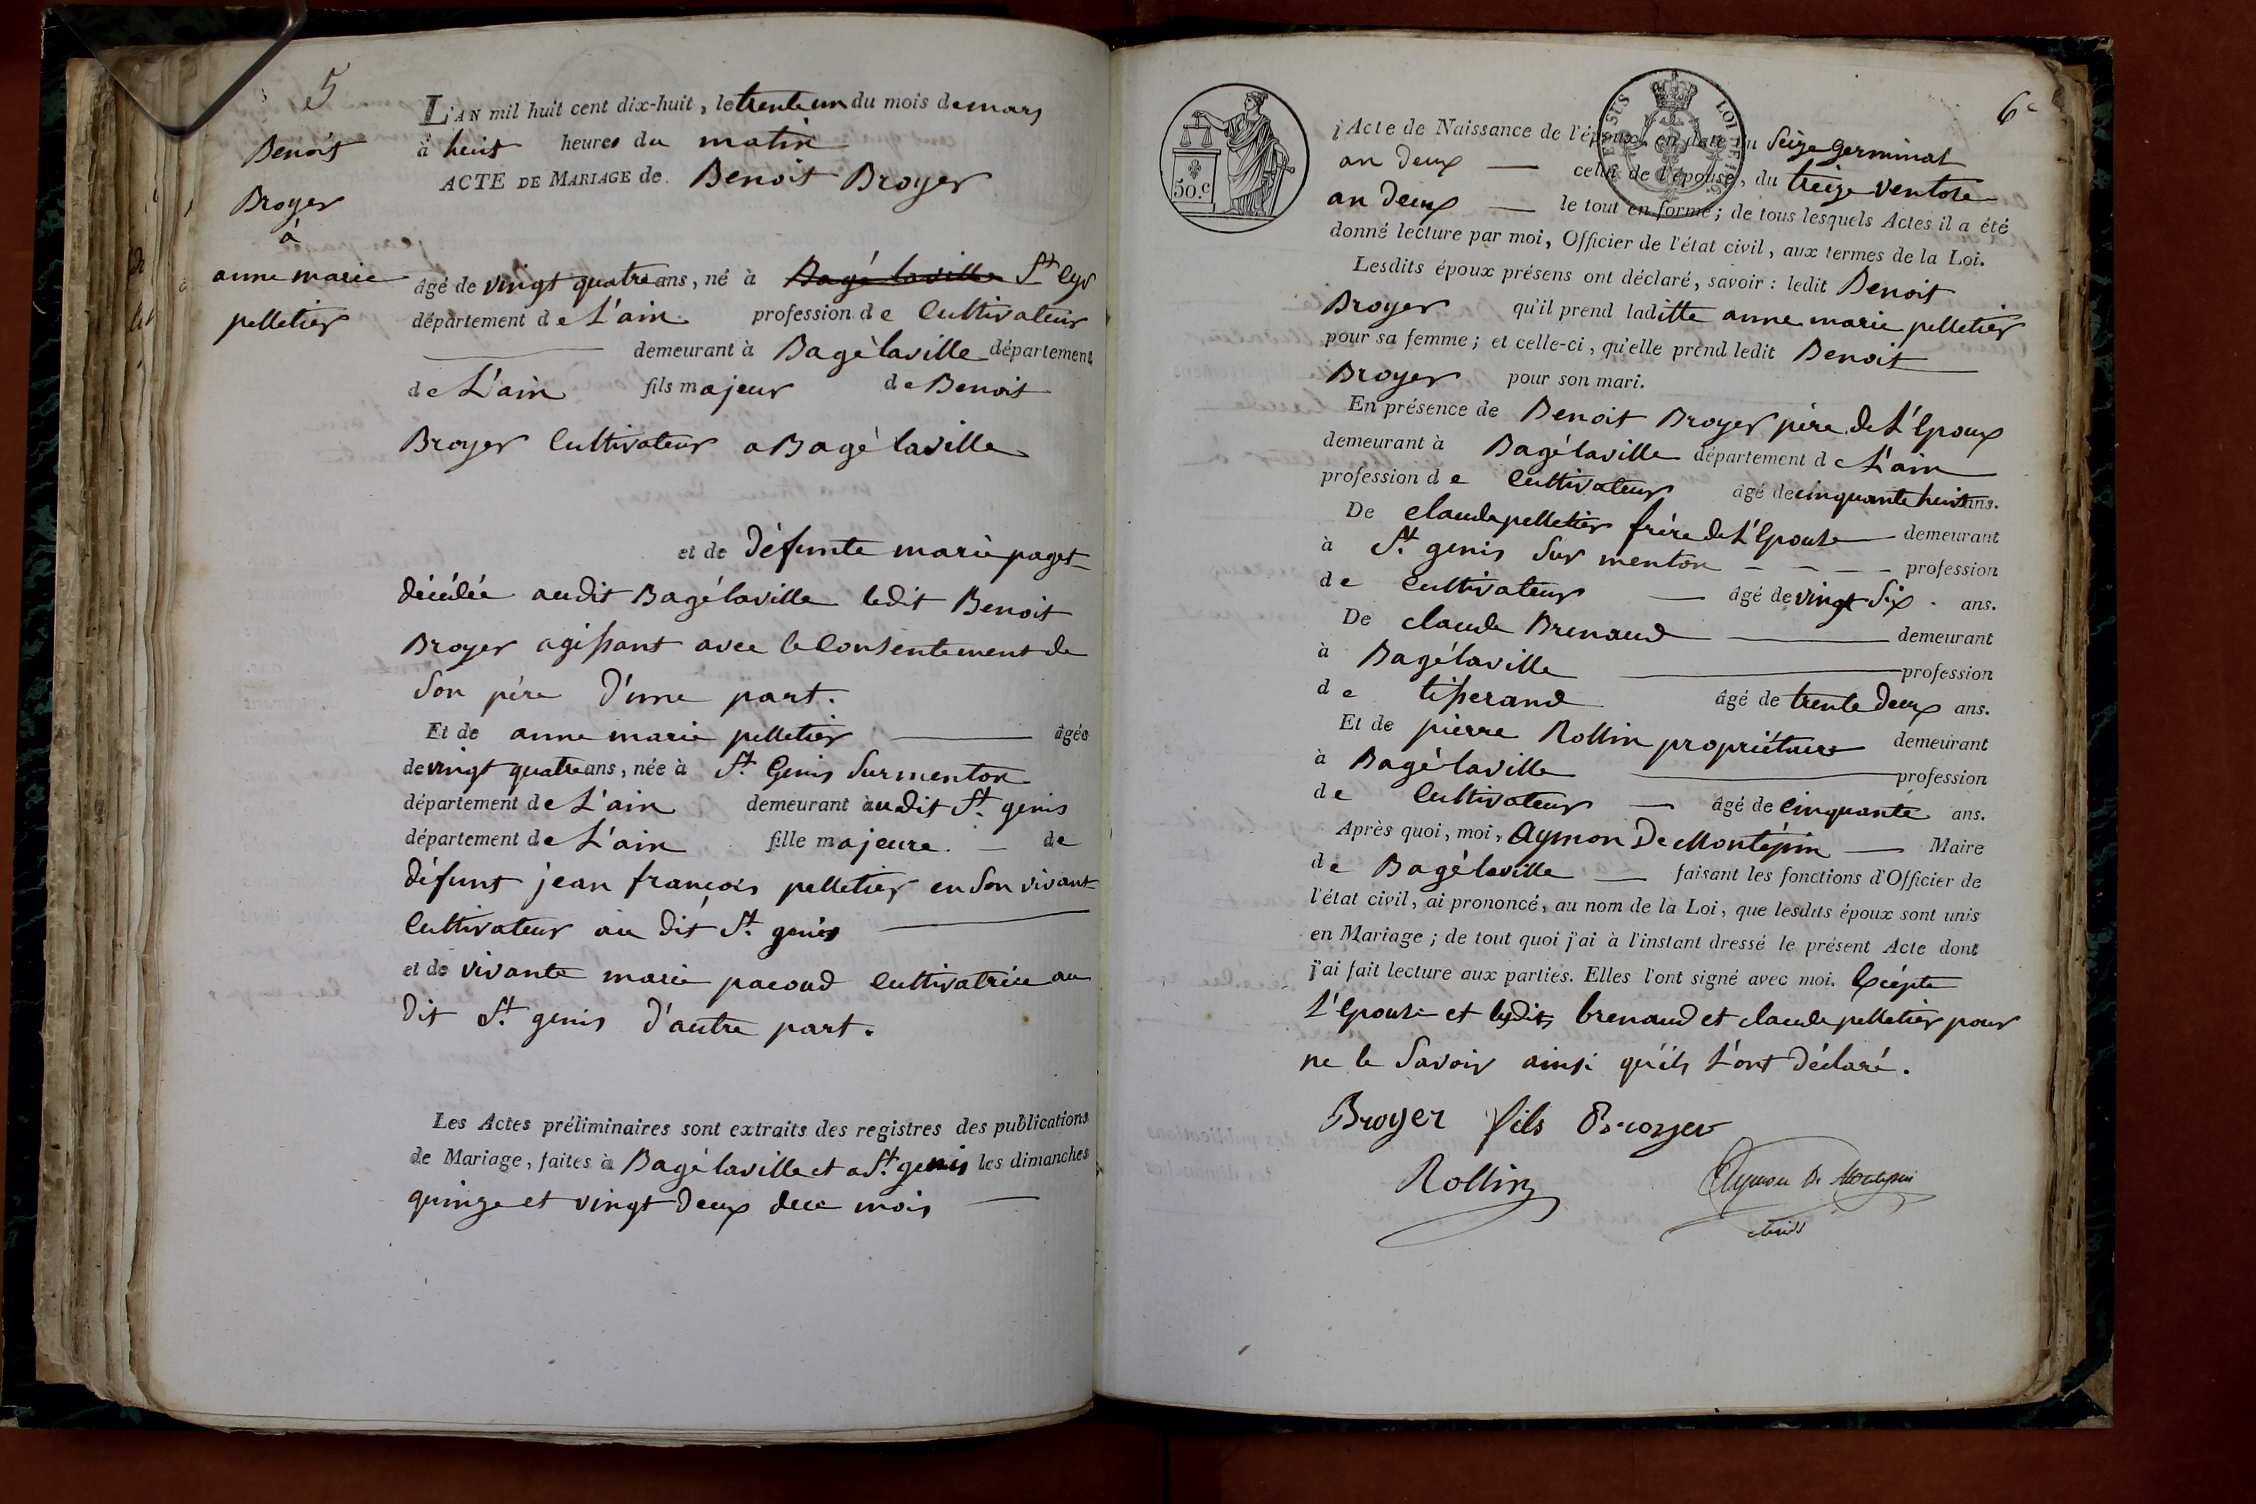 5
Benoit
Broyer
à
anne marie
pelletier
L'AN mil huit cent dix-huit, le trente un du mois de mars
à huit heures du matin
ACTE DE MARIAGE de Benoit Broyer
âgé de vingt quatre ans, né à Bagé laville St Cyr
département de L'ain profession de Cultivateur
demeurant à Bagé laville département
de L'ain fils majeur de Benoit
Broyer Cultivateur a Bagé laville
et de défunte marie paget
décédée audit Bagé laville ledit Benoit
Broyer agissant avec le Consentement de
Son père D'une part.
Et de anne marie pelletier âgée
de vingt quatre ans, née à St Genis Sur menton
département de L'ain demeurant audit St genis
département de L'ain fille majeure de
défunt jean françois pelletier en Son vivant
Cultivateur au dit St genis
et de vivante marie pacoud Cultivatrice au
Dit St genis D'autre part.
Les Actes préliminaires sont extraits des registres des publications
de Mariage, faites à Bagé laville et a St genis les dimanches
quinze et vingt Deux de ce mois
6e
50.c
LOI DE
Acte de Naissance de l'époux, en date du Seize germinal
an Deux celui de l'épouse, du treize ventose
an Deux le tout en forme; de tous lesquels Actes il a été
donné lecture par moi, Officier de l'état civil, aux termes de la Loi.
Lesdits époux présens ont déclaré, savoir: ledit Benoit
Broyer qu'il prend laditte anne marie pelletier
pour sa femme; et celle-ci, qu'elle prend ledit Benoit
Broyer pour son mari.
En présence de Benoit Broyer père de L'Epoux
demeurant à Bagé laville département de L'ain
profession de Cultivateur âgé de cinquante huit ans.
De claude pelletier frère de L'Epouse demeurant
à St genis Sur menton profession
de Cultivateur âgé de vingt Six ans.
De claude Brenaud demeurant
à Bagé laville profession
de tisserand âgé de trente Deux ans.
Et de pierre Rollin propriétaire demeurant
à Bagé laville profession
de Cultivateur âgé de Cinquante ans.
Après quoi, moi, Aymon De Montépin Maire
de Bagé laville faisant les fonctions d'Officier de
l'état civil, ai prononcé, au nom de la Loi, que lesdits époux sont unis
en Mariage; de tout quoi j'ai à l'instant dressé le présent Acte dont
j'ai fait lecture aux parties. Elles l'ont signé avec moi. Excépté
L'Epouse et lesdits brenaud et claude pelletier pour
ne le Savoir ainsi qu'ils L'ont Déclaré.
Broyer fils Broyer
Rollin Aymon De Montépin